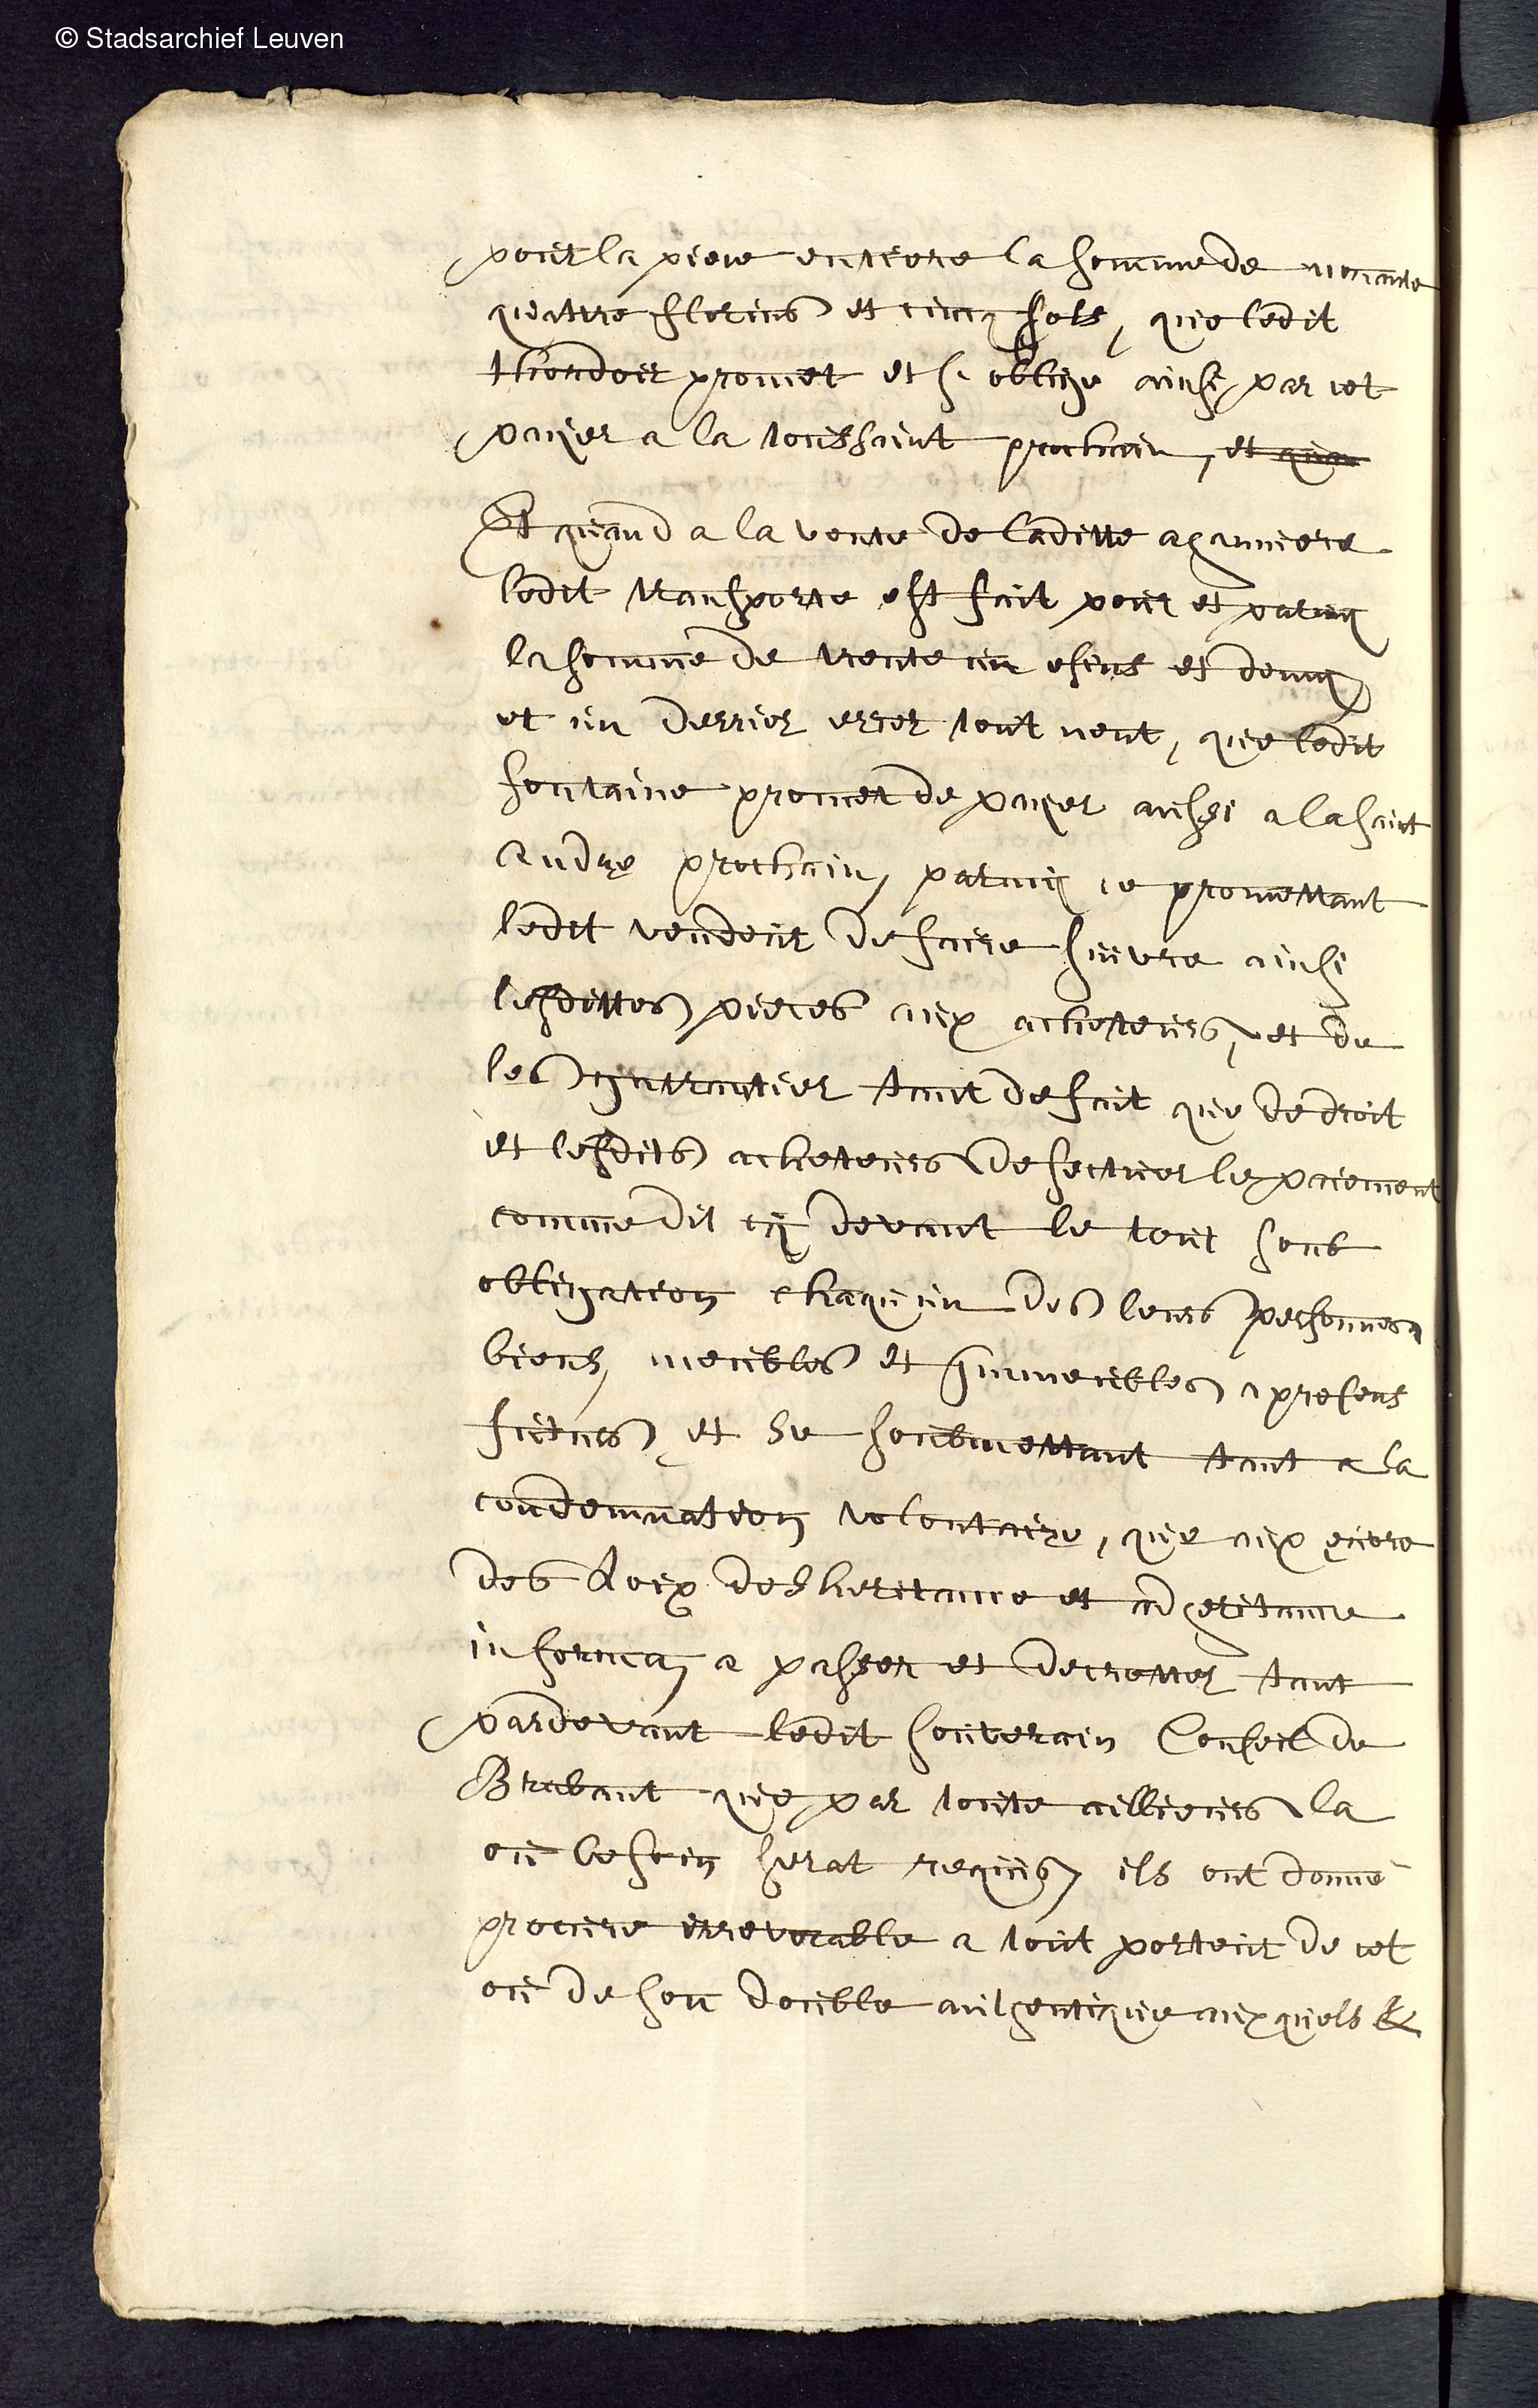 © Stadsarchief Leuven
pour la piece entiere la somme de nonante
quattre florins et cincq sols, que ledit
thiordoir promet et s'oblige ainsi par cet
paÿer a la toussaint prochain, et quan
Et quand a la vente de laditte
ledit transporte est fait pour et parmÿ
la somme de trente un escus et demÿ
et un derrier tout neut, que ledit
fontaine promet de paÿer aussi a la saint
andre prochain, parmÿ ce promettant
ledit vendeur de faire suivre ainsi
lesdittes pieces aux acheteurs, et de
les garrantier tant de fait que de droit
et lesdits acheteurs desectuer le paiement
comme dit cÿ devant le tout soub
obligation chaqu'un des leurs personnes
biens, meubles et immeubles presens
futurs, et se soubmettant tant a la
condemnation volontaire, que aux
des loix desheritance et adheritance
in forma, a passer et decretter tant
pardevant ledit souverain Conseil de
Brabant que par toute allieurs la
ou besoin serat requis, ils ont donné
procure irrevocable a tout porteur de cet
ou de son double authentique auxquels &